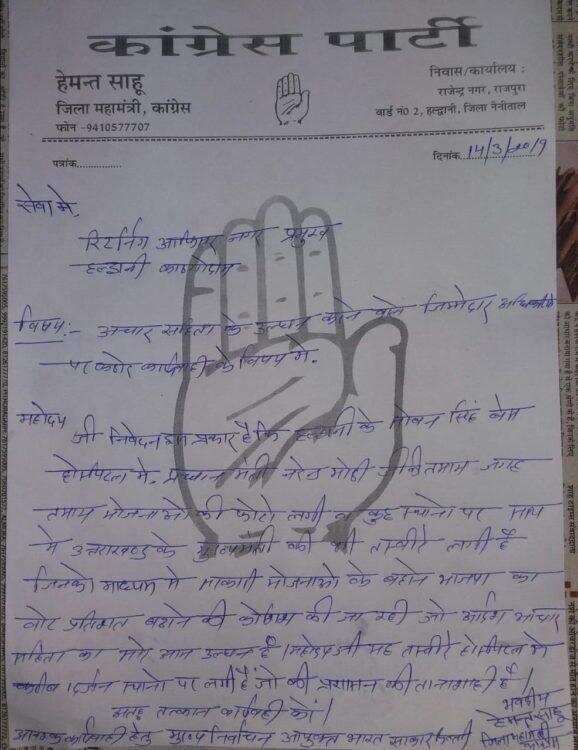 कांग्रेस पार्टी
हेमन्त साहू
जिला महामंत्री, कांग्रेस
फोन -9410577707
निवास/कार्यालय :
राजेन्द्र नगर, राजपुरा
वार्ड नं0 2, हल्द्वानी, जिला नैनीताल
पत्रांक..............
दिनांक. 14/3/2019
सेवा में,
रिटर्निंग नगर प्रमुख
हल्द्वानी काठगोदाम
विषय:- अचार संहिता के उल्घन करने वाले जिम्मेदार अधिकारियो
पर कठोर कार्यवाही के विषय में.
महोदय
जी निवेदन इस प्रकार है कि हल्द्वानी के सोबन सिंह जीना
होस्पिटल में. प्रधान मंत्री नरेन्द्र मोदी जी की तमाम जगह
तमाम योजनाओ की फोटो लगी व कुछ स्थानो पर साथ
में उत्तराखण्ड के मुख्यमंत्री की भी तस्वीरे लगी है
जिनके माध्यम से सरकारी योजनाओ के बहाने भाजपा का
वोट प्रतिशत बढाने की कोशिश की जा रही जो आदर्श आचार
संहिता का उल्घन है। महोदय जी यह तस्वीरे होस्पिटल में
दर्जन स्थानो पर लगी है जो की प्रशासन की तानाशाही है।
अतः तत्काल कार्यवाही करें।
भवदीय
हेमन्त साहू
आवश्यक कार्यवाही हेतु मुख्य निर्वाचन आयुक्त भारत सरकार दिल्ली
जिला महामंत्री